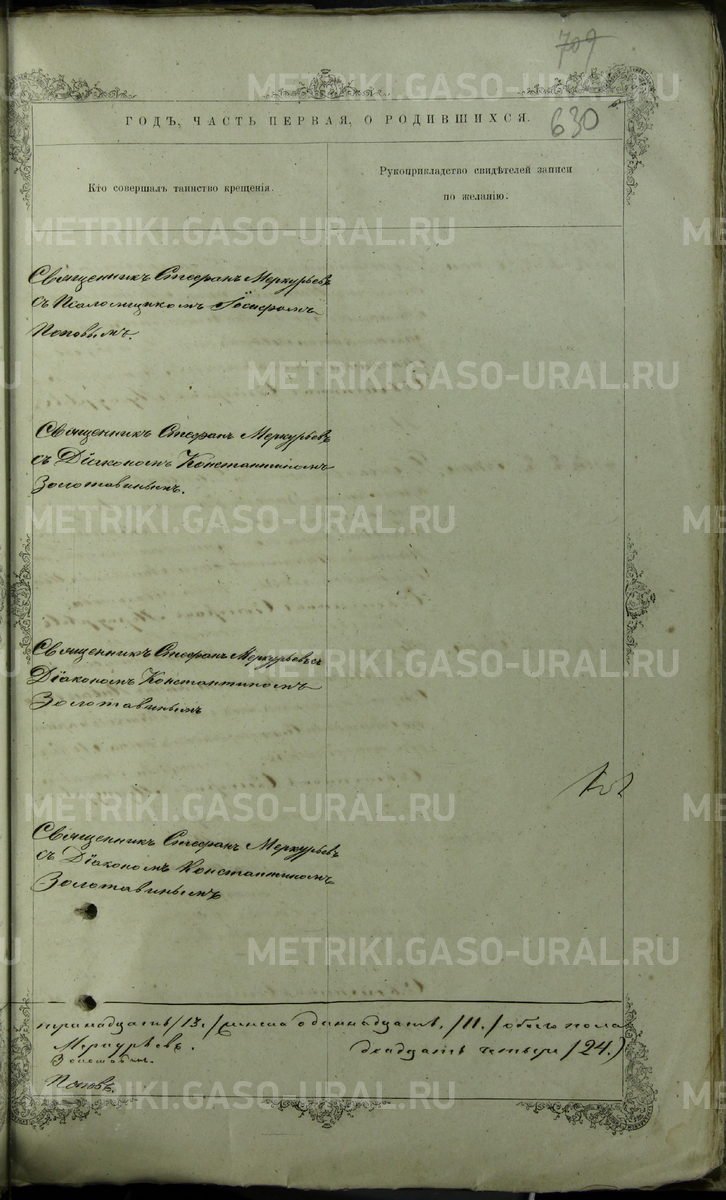 709
METRIKI.GASO-URAL.RU
ГОДЪ, ЧАСТЬ ПЕРВАЯ, О РОДИВШИХСЯ.
630
Кто совершалъ таинство крещенія.
Рукоприкладство свидѣтелей записи
по желанію.
Священникъ Стефанъ Меркурьевъ
съ Псаломщикомъ Іосифомъ
Поповымъ.
Священникъ Стефанъ Меркурьевъ
съ Діакономъ Константиномъ
Золотавинымъ.
Священникъ Стефанъ Меркурьевъ съ
Діакономъ Константиномъ
Золотавинымъ
Священникъ Стефанъ Меркурьевъ
съ Діакономъ Константиномъ
Золотавинымъ
тринадцать /13./ женска одиннадцать, /11./ обоего пола
Меркурьевъ.
двадцать четыре /24.)
Поповъ.